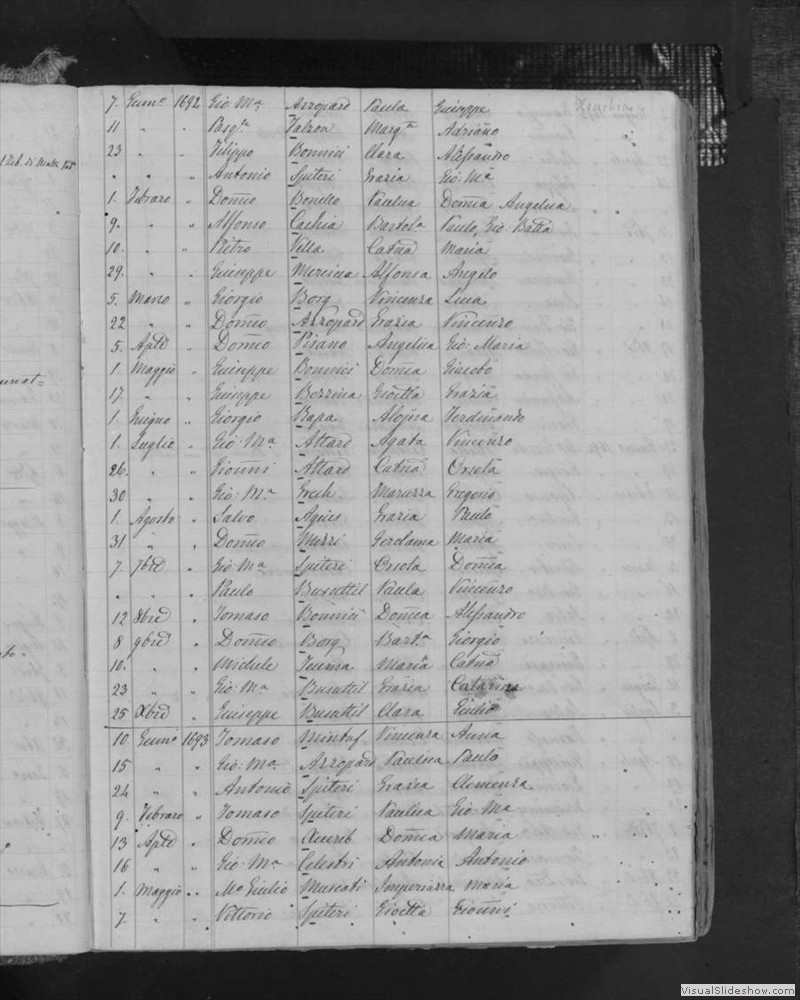 7. Genn.º 1692 Gio: M.ª Azzopard Paula Giuseppe
11 " " Pasq.ª Falzon Marg.ª Adriano
23 " " Filippo Bonnici Clara Alessandro
" " " Antonio Spiteri Grazia Gio: M.ª
1. Febraro " Domco Bonello Paulica Domca Angelica
9. " " Alfonso Cachia Bartol.ª Paulo, Gio: Batta
10. " " Pietro Vella Catna Maria
29. " " Giuseppe Mercieca Alfonsa Angelo
5. Marzo " Giorgio Borg Vincenza Luca
22 " " Domco Azzopard Grazia Vincenzo
5. Aple " Domco Pisano Angelica Gio: Maria
1. Maggio " Giuseppe Bonnici Domca Giacobo
17. " " Giuseppe Bezzina Gioetta Grazia
1. Giugno " Giorgio Bapa Aloisea Ferdinando
1. Luglio " Gio: M.ª Attard Agata Vincenzo
26. " " Gionni Attard Catna Orsola
30 " " Gio: M.ª Grech Maruzza Gregorio
1. Agosto " Salvo Agius Grazia Paulo
31 " " Domco Muzzi Gerolama Maria
7. 7bre " Gio: M.ª Spiteri Orsola Domca
" " " Paulo Busuttil Paula Vincenzo
12 8bre " Tomaso Bonnici Domca Alessandro
8 9bre " Domco Borg Bart.ª Giorgio
10. " " Michele Maria Catna
23 " " Gio: M.ª Busuttil Grazia Catarina
25 Xbre " Giuseppe Busuttil Clara Giulio
10 Genn.º 1693 Tomaso Mintuf Vincenza Anna
15 " " Gio: M.ª Azzopard Paulica Paulo
24 " " Antonio Spiteri Grazia Clemenza
9. Febraro " Tomaso Spiteri Paulica Gio: M.ª
13 Aple " Domco Xuereb Domca Maria
16 " " Gio: M.ª Celestri Antonia Antonio
1. Maggio " M.º Giulio Muscati Imperiazza Maria
7. " " Vittorio Spiteri Gioetta Gionni
VisualSlideshow.com